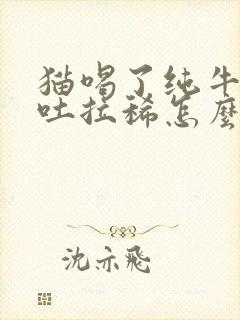 猫喝了纯牛
吐拉稀怎麼
沈亦飛